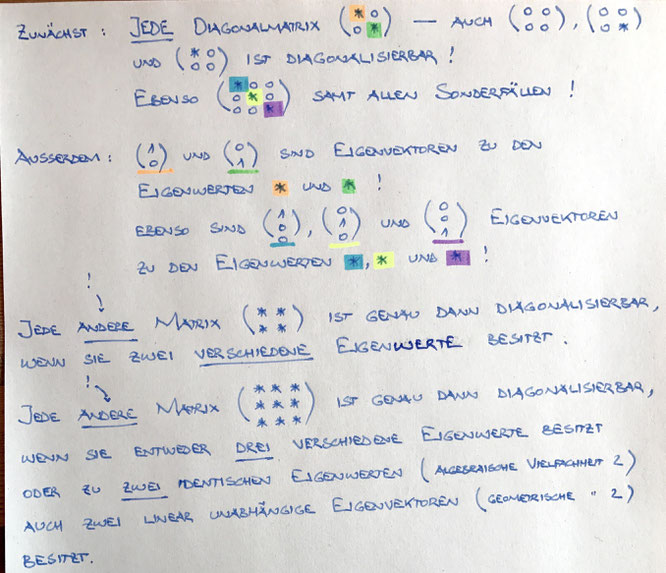 ZUNÄCHST : JEDE DIAGONALMATRIX (* 0 / 0 *) — AUCH (0 0 / 0 0), (0 0 / 0 *)
UND (* 0 / 0 0) IST DIAGONALISIERBAR !
EBENSO (* 0 0 / 0 * 0 / 0 0 *) SAMT ALLEN SONDERFÄLLEN !
AUSSERDEM : (1 / 0) UND (0 / 1) SIND EIGENVEKTOREN ZU DEN
EIGENWERTEN * UND * !
EBENSO SIND (1 / 0 / 0), (0 / 1 / 0) UND (0 / 0 / 1) EIGENVEKTOREN
ZU DEN EIGENWERTEN *, * UND * !
!
JEDE ANDERE MATRIX (* * / * *) IST GENAU DANN DIAGONALISIERBAR,
WENN SIE ZWEI VERSCHIEDENE EIGENWERTE BESITZT.
!
JEDE ANDERE MATRIX (* * * / * * * / * * *) IST GENAU DANN DIAGONALISIERBAR,
WENN SIE ENTWEDER DREI VERSCHIEDENE EIGENWERTE BESITZT
ODER ZU ZWEI IDENTISCHEN EIGENWERTEN (ALGEBRAISCHE VIELFACHHEIT 2)
AUCH ZWEI LINEAR UNABHÄNGIGE EIGENVEKTOREN (GEOMETRISCHE " 2)
BESITZT.